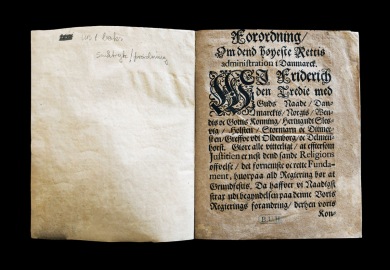 Forordning/
Om dend høyeste Rettis
administration i Danmarck.
WEJ Friderich
den Tredie med
Guds Naade/ Dan-
marckis/ Norgis/ Wen-
dis oc Gottis Konning/ Hertug udi Sles-
vig/ Holsten/ Stormarn oc Ditmer-
sken/ Greffve udi Oldenborg/ oc Delmen-
horst. Giøre alle vitterligt/ at effterom
Justitien er nest dend sande Religions
øffvelse/ det fornemste oc rette Funda-
ment, hvorpaa ald Regiering bør at
Grundfestis. Da haffver vi Naadigst
strax udi begyndelsen paa denne Voris
Regierings forandring/ derhen voris
Kon-